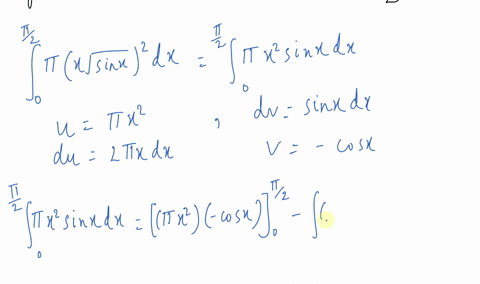 ∫₀^{π/2} π(x√sinx)² dx = ∫₀^{π/2} πx² sinx dx
u = πx² , dv = sinx dx
du = 2πx dx v = - cosx
∫₀^{π/2} πx² sinx dx = [(πx²)(-cosx)]₀^{π/2} - ∫(